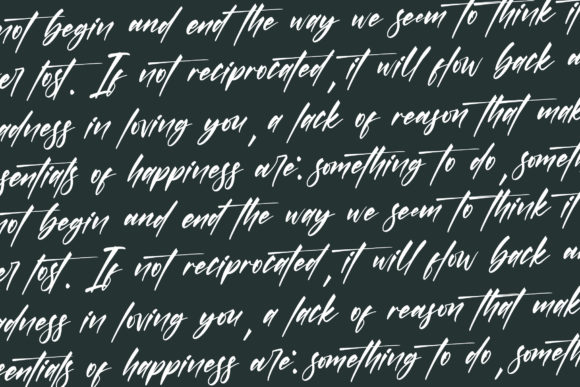 not begin and end the way we seem to think it
er tost. If not reciprocated, it will flow back a
adness in loving you, a lack of reason that mak
sentials of happiness are: something to do, someth
not begin and end the way we seem to think it
er tost. If not reciprocated, it will flow back a
adness in loving you, a lack of reason that mak
sentials of happiness are: something to do, someth